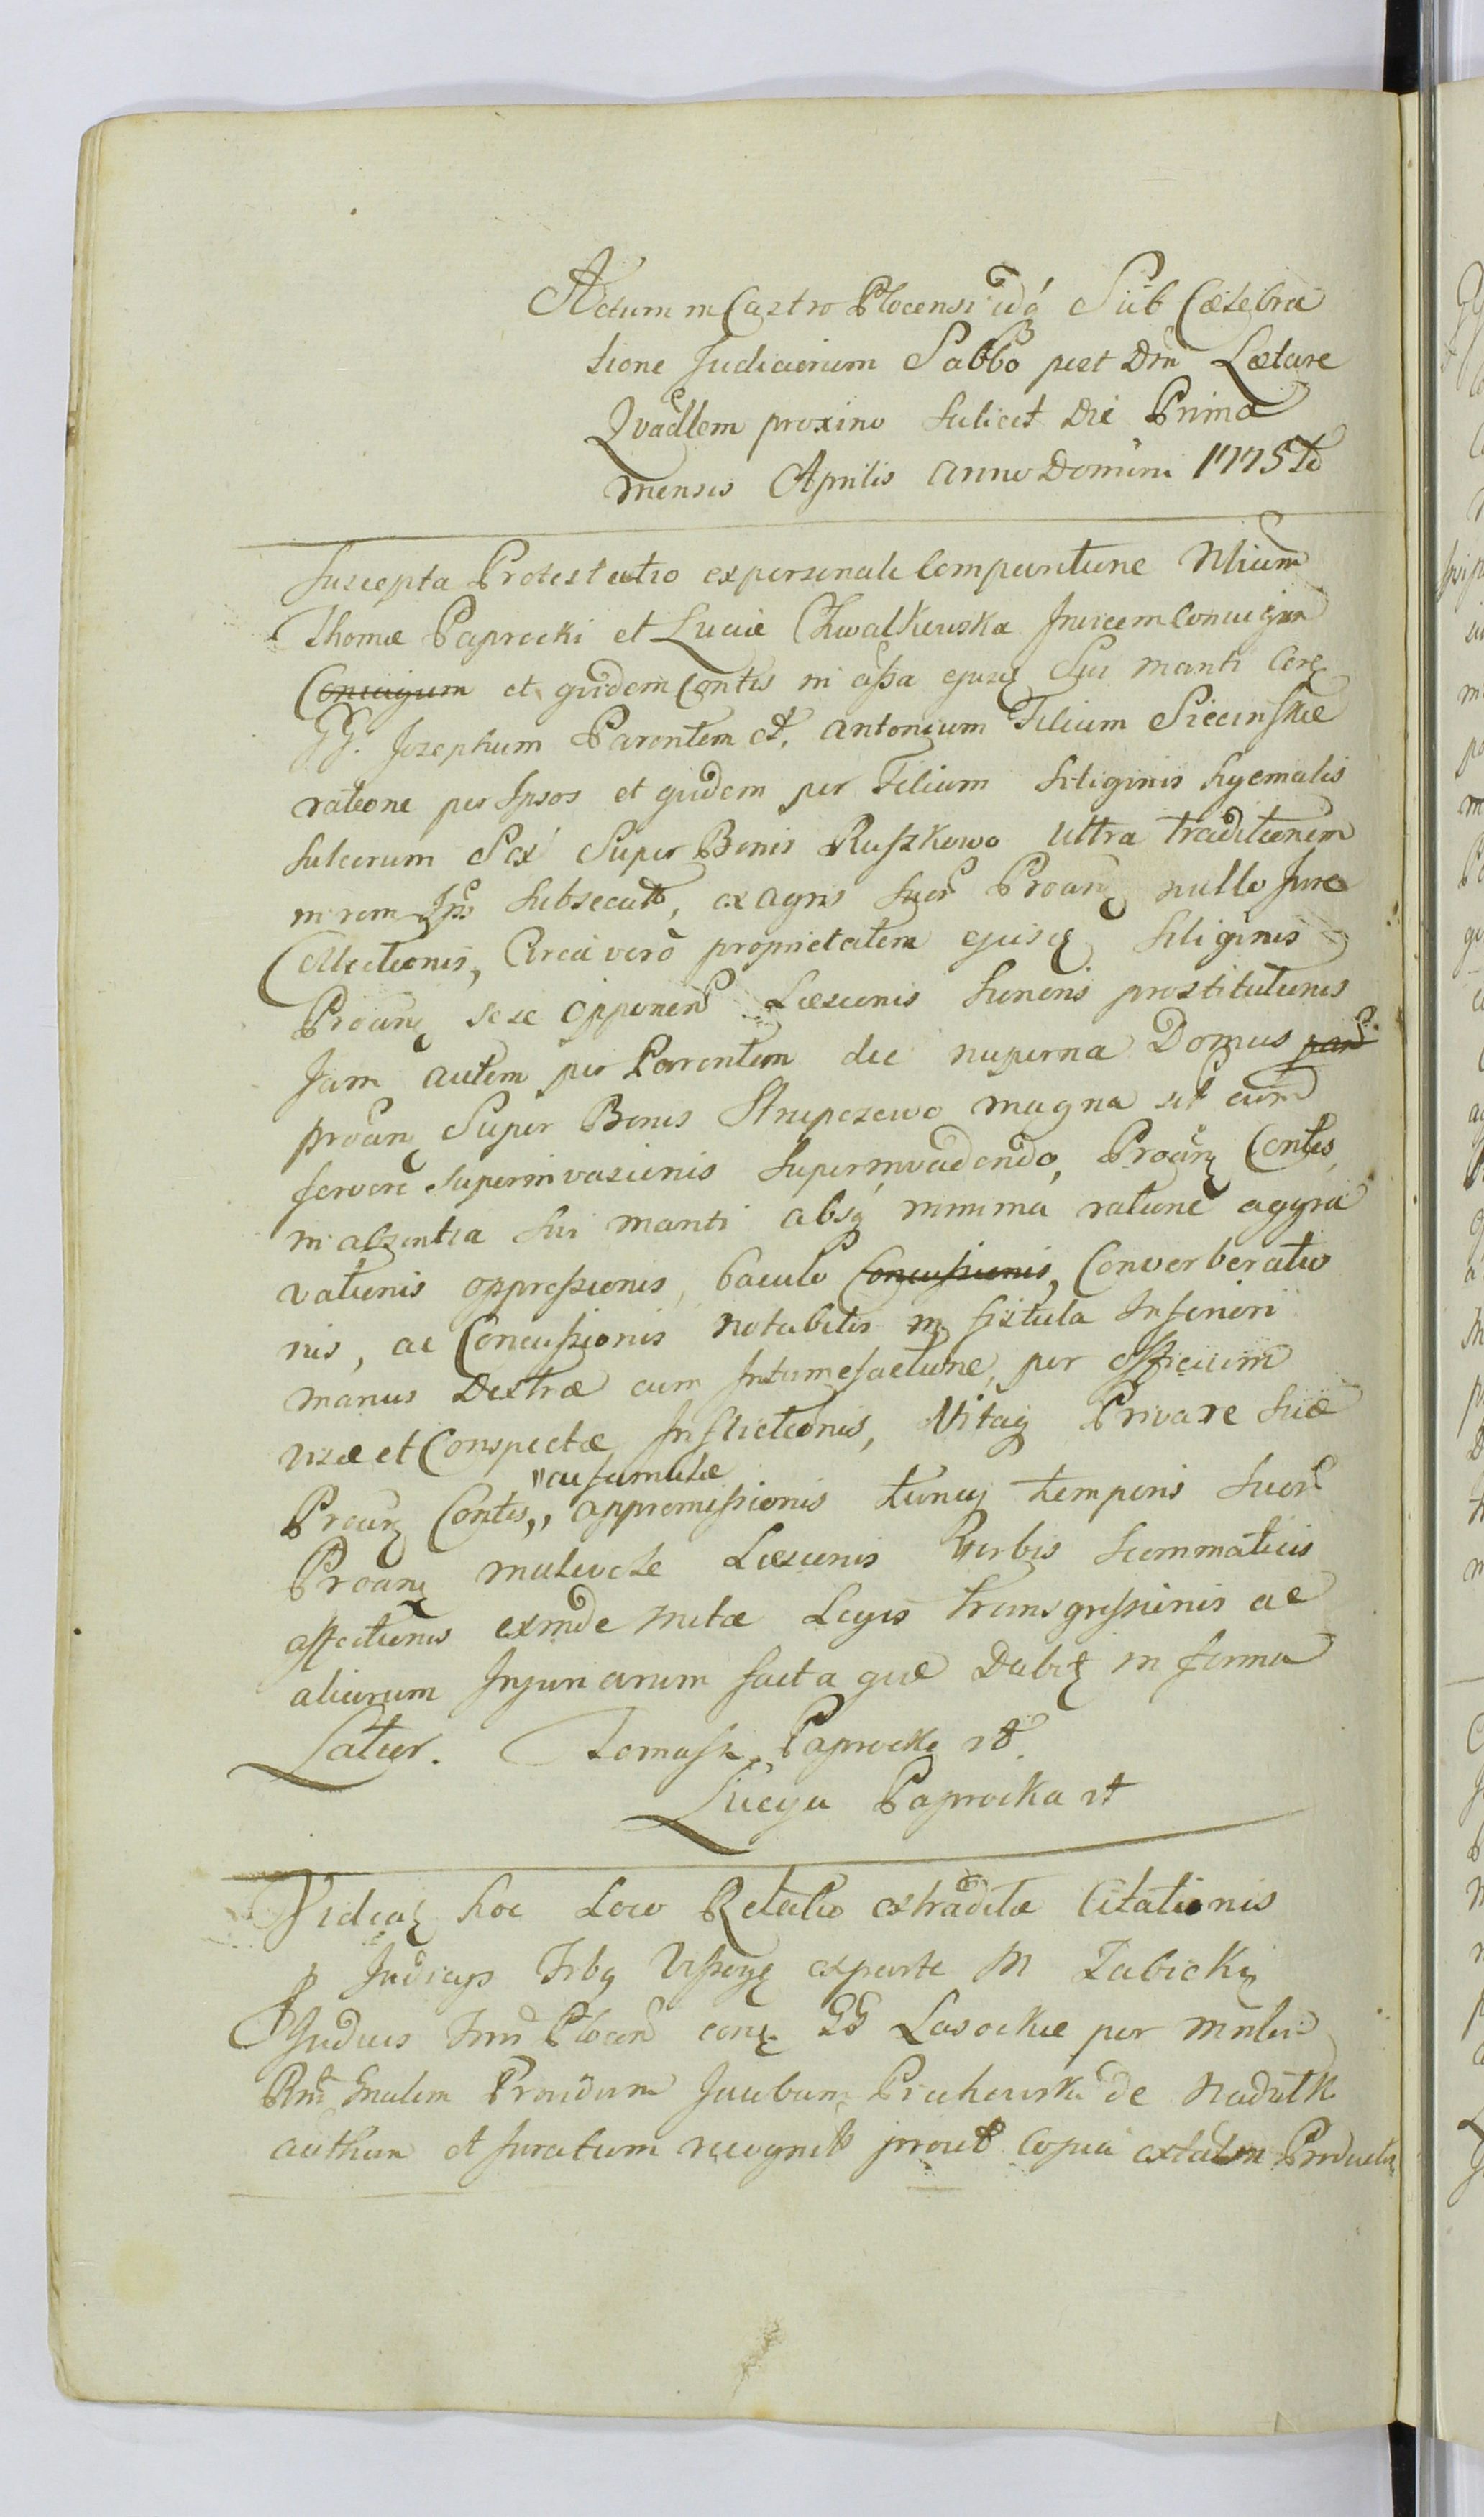 Actum in Castro Plocensi idq́ Sub Cœlebra
tione Judiciorum Sabbo post Dm̃ Lætare
Qvadlem proximo scilicet Die Prima
mensis Aprilis anno Domini 1775to
Suscepta Protestatio ex personali Comparitione Nlium
Thomæ Paprocki et Luciæ Chwalkowska Invicem Conicejum
Conicigum et quidem Contis in assa ejusq Sui mariti Corę
GG. Josephum Parentem et. Antonium Filium Siecinskie
ratione per Ipsos et quidem per Filium siliginis hyemalis
sulcorum Sex Super Bonis Ruszkowo Ultra traditionem
in rem Ips subsecut, ex agris suor Proanę nullo Jure
Collectionis, Circa vero proprietatem ejusq siliginis
Proanę sese opponen Læsionis honoris prostitutionis
Jam autem per Parentem die nuperna Domus pand
proanę Super Bonis Strupczewo magna ut cum
fervore superinvasionis superinvadendo, Proanę Contis
in absentia sui mariti absq́ minima ratione aggra
vationis oppressionis, baculo Concussionis, Converberatio
nis, ac Concussionis notabilis in fistula Inferiori
manus Dextræ cum Intumefactione, per officium
visæ et Conspectæ Inflictionis, Vitaq Privare suæ
"ac famulæ
Proanę Contis,, appromissionis tuncq temporis suor
Proanę malevole Læsionis Verbis scommaticis
affectionis exinde notæ Legis transgressionis ac
aliarum Injuriarum facta quæ Dabitę in forma
Latior. Tomasz Paprocki rt.
Lucya Paprocka rt
Videaę hoc Loco Relatio extraditæ Citationis
p Judicys Trbq Visseyę ex parte M Zabickię
Judicis Trrd Plocen conę GG Lasockie per mnlem
Rnd Gnalem Providum Jacobum Piechowski de Nadułk
authen et Juratum recognit prout Copia extat in Producta